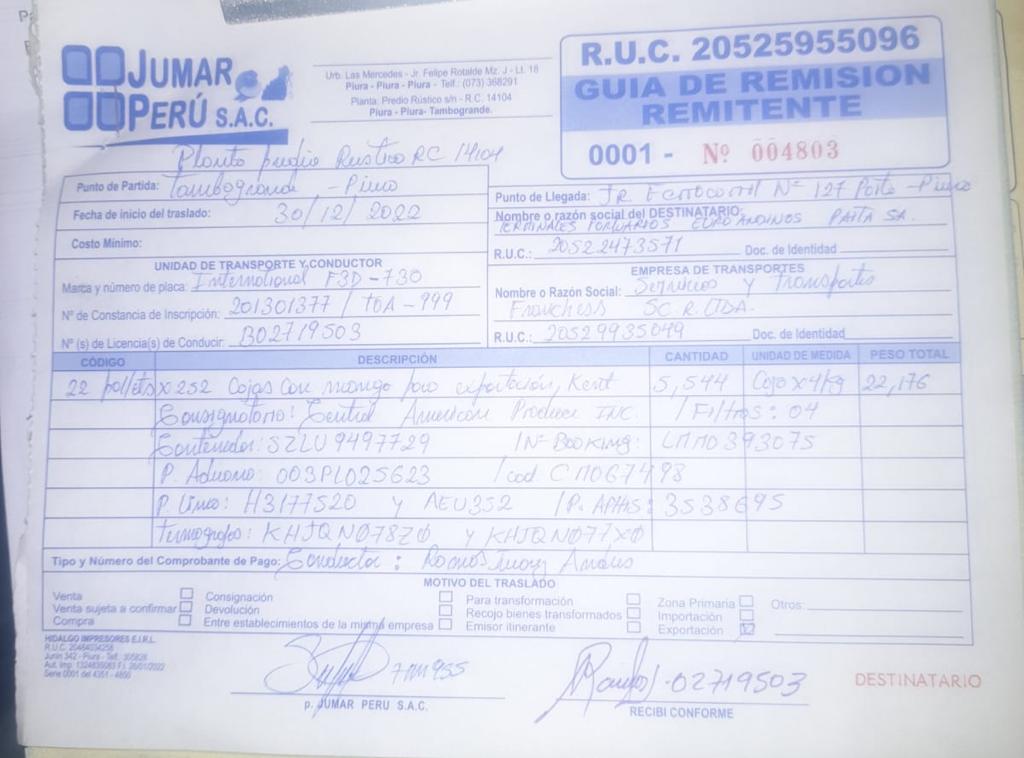 JUMAR
PERÚ S.A.C.
Urb. Las Mercedes - Jr. Felipe Rotalde Mz. J - Lt. 18
Piura - Piura - Piura - Telf.: (073) 368291
Planta: Predio Rústico s/n - R.C. 14104
Piura - Piura- Tambogrande.
R.U.C. 20525955096
GUIA DE REMISION
REMITENTE
0001 - Nº 004803
Planta predio Rustico RC 14104
Punto de Partida: Tambogrande - Piura
Fecha de inicio del traslado: 30/12/2022
Costo Mínimo:
Punto de Llegada: JR. Ferrocarril Nº 127 Paita - Piura
Nombre o razón social del DESTINATARIO:
TERMINALES PORTUARIOS EUROANDINOS PAITA SA.
R.U.C.: 20522473571 Doc. de Identidad
UNIDAD DE TRANSPORTE Y CONDUCTOR
Marca y número de placa: International F3D-730
Nº de Constancia de Inscripción: 201301377 / t0A-999
Nº (s) de Licencia(s) de Conducir: B02719503
EMPRESA DE TRANSPORTES
Nombre o Razón Social: Servicios y Transportes
SC.R.LTDA.
R.U.C.: 20529935049 Doc. de Identidad
CÓDIGO DESCRIPCIÓN CANTIDAD UNIDAD DE MEDIDA PESO TOTAL
22 pallets x 252 Cajas con mango para exportación, Kent 5,544 Caja x 4kg 22,176
Consignatario: Central American Produce INC. / Filtros: 04
Contenedor: SZLU9497729 / Nº BOOKING: LMM0393075
P. Aduana: 003PL025623 / cod. CM067498
P. Linea: H3177520 y AEU352 / P. APHIS: 3538695
Termografos: KHJQN078Z0 y KHJQN077X0
Tipo y Número del Comprobante de Pago: Conductor: Ramos Andres
MOTIVO DEL TRASLADO
Venta
Venta sujeta a confirmar
Compra
Consignación
Devolución
Entre establecimientos de la misma empresa
Para transformación
Recojo bienes transformados
Emisor itinerante
Zona Primaria
Importación
Exportación
Otros:
HIDALGO IMPRESORES E.I.R.L.
R.U.C. 20484034258
Junín 342 - Piura - Telf. 305828
Serie 0001 del 4351 - 4850
p. JUMAR PERU S.A.C.
02719503
RECIBI CONFORME
DESTINATARIO